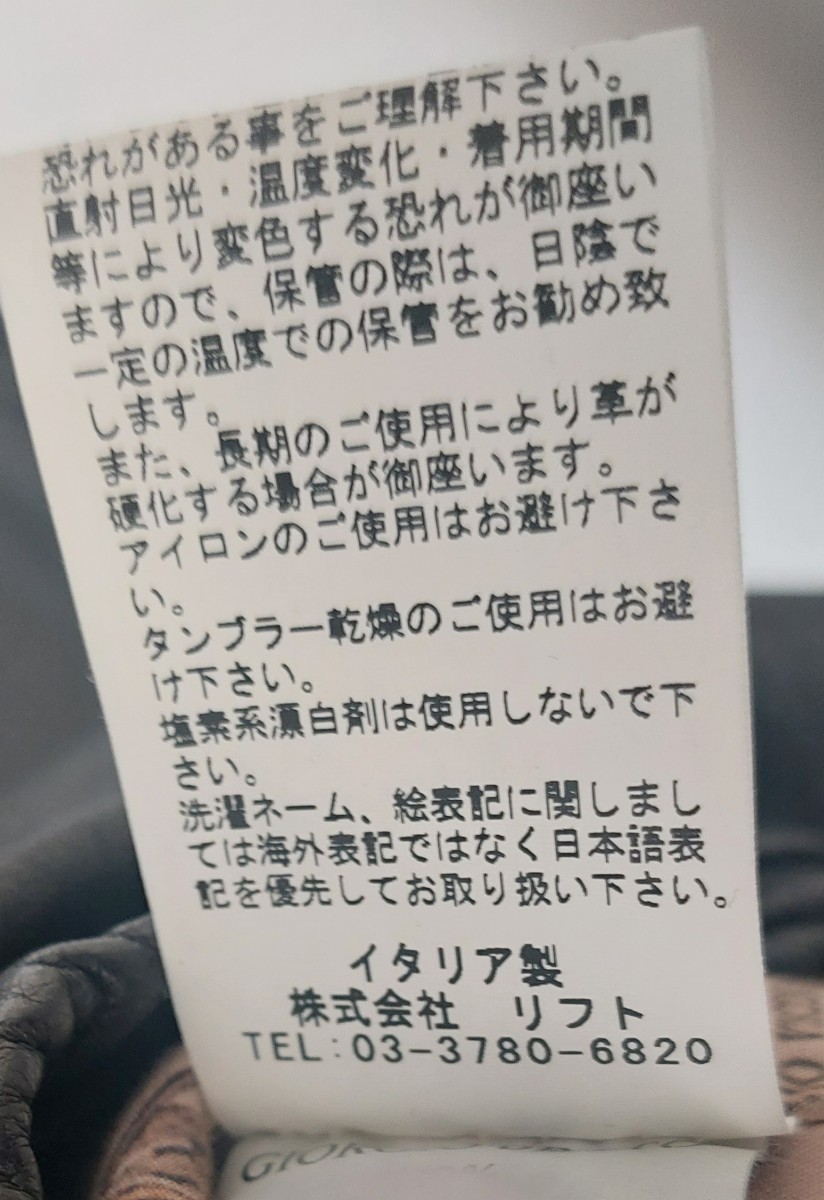 恐れがある事をご理解下さい。
直射日光・温度変化・着用期間
等により変色する恐れが御座い
ますので、保管の際は、日陰で
一定の温度での保管をお勧め致
します。
また、長期のご使用により革が
硬化する場合が御座います。
アイロンのご使用はお避け下さ
い。
タンブラー乾燥のご使用はお避
け下さい。
塩素系漂白剤は使用しないで下
さい。
洗濯ネーム、絵表記に関しまし
ては海外表記ではなく日本語表
記を優先してお取り扱い下さい。
イタリア製
株式会社 リフト
TEL:03-3780-6820